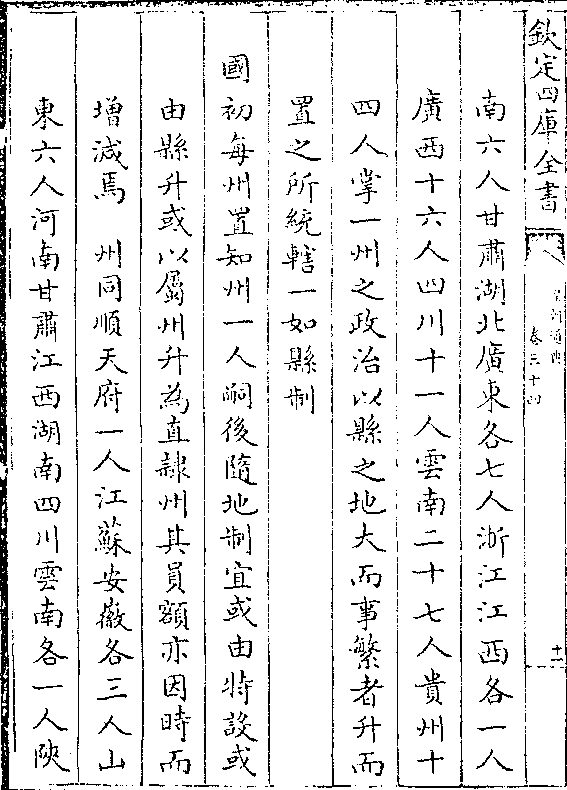 欽定四庫全書
卷三十四
十一
南六人甘肅湖北廣東各七人浙江江西各一人
廣西十六人四川十一人雲南二十七人貴州十
四人掌一州之政治以縣之地大而事繁者升而
置之所統轄一如縣制
國初每州置知州一人嗣後隨地制宜或由特設或
由縣升或以屬州升為直隸州其員額亦因時而
增減焉　州同順天府一人江蘇安徽各三人山
東六人河南甘肅江西湖南四川雲南各一人陜